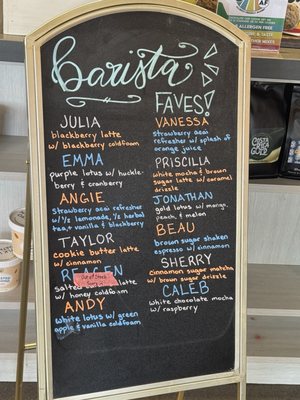 Barista
FAVES!
JULIA
blackberry latte
w/ blackberry coldfoam
EMMA
purple lotus w/ huckle-
berry & cranberry
ANGIE
Strawberry acai refresher
w/ 1/2 lemonade, 1/2 herbal
tea, & vanilla & blackberry
TAYLOR
cookie butter latte
w/ cinnamon
salted latte
w/ honey coldfoam
ANDY
white lotus w/ green
apple & vanilla coldfoam
VANESSA
strawberry acai
refresher w/ splash of
orange juice
PRISCILLA
white mocha & brown
sugar latte w/ caramel
drizzle
JONATHAN
gold lotus w/ mango,
peach, & melon
BEAU
brown sugar shaken
espresso w/ cinnamon
SHERRY
cinnamon sugar matcha
w/ brown sugar drizzle
CALEB
white chocolate mocha
w/ raspberry
ALLERGEN FREE
COSTA RICA
GOLD